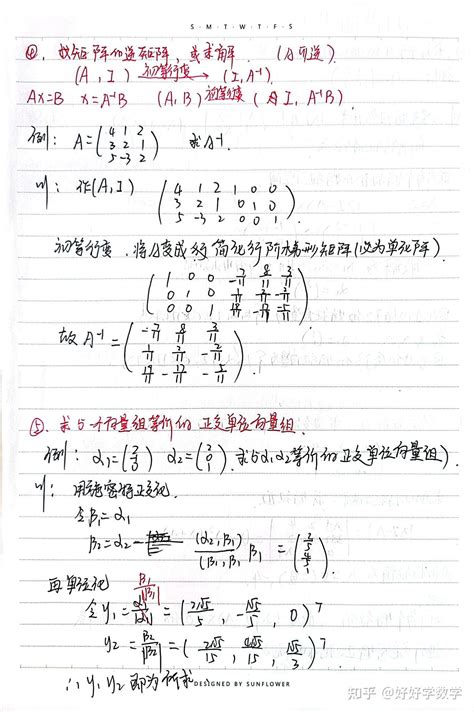 S M T W T F S
④. 找矩阵的逆矩阵, 或求解. (A可逆)
(A, I) 初等行变→ (I, A⁻¹)
AX=B X=A⁻¹B (A, B) 初等行变→ (I, A⁻¹B)
例: A=(4 1 2
3 2 1
5 -3 2) 求A⁻¹.
作(A,I) (4 1 2 1 0 0
3 2 1 0 1 0
5 -3 2 0 0 1)
初等行变, 将A变成 简化行阶梯形矩阵(必为单位阵)
(1 0 0 -7/11 8/11 3/11
0 1 0 1/11
0 0 1 -5/11)
故A⁻¹=(-7/11 8/11 3/11
1/11
-5/11)
⑤. 求与一个向量组等价的 正交单位向量组.
例: α₁= α₂= 求与α₁α₂等价的正交单位向量组)
用施密特正交化.
令β₁=α₁
β₂=α₂- (α₂,β₁)/(β₁,β₁) β₁ =
再单位化 β₁/|β₁|
令y₁= = (2√5/5, -√5/5, 0)ᵀ
y₂=β₂/|β₂|=(2√5/15, 4√5/15, √5/3)ᵀ
∴ y₁ y₂ 即为所求.
DESIGNED BY SUNFLOWER
知乎 @好好学数学